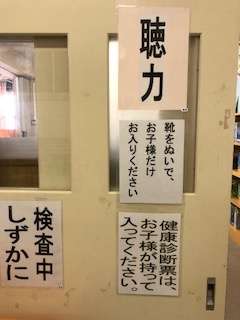 聴力
靴をぬいで、
お子様だけ
お入りください
健康診断票は、
お子様が持って
入ってください。
検査中
しずかに